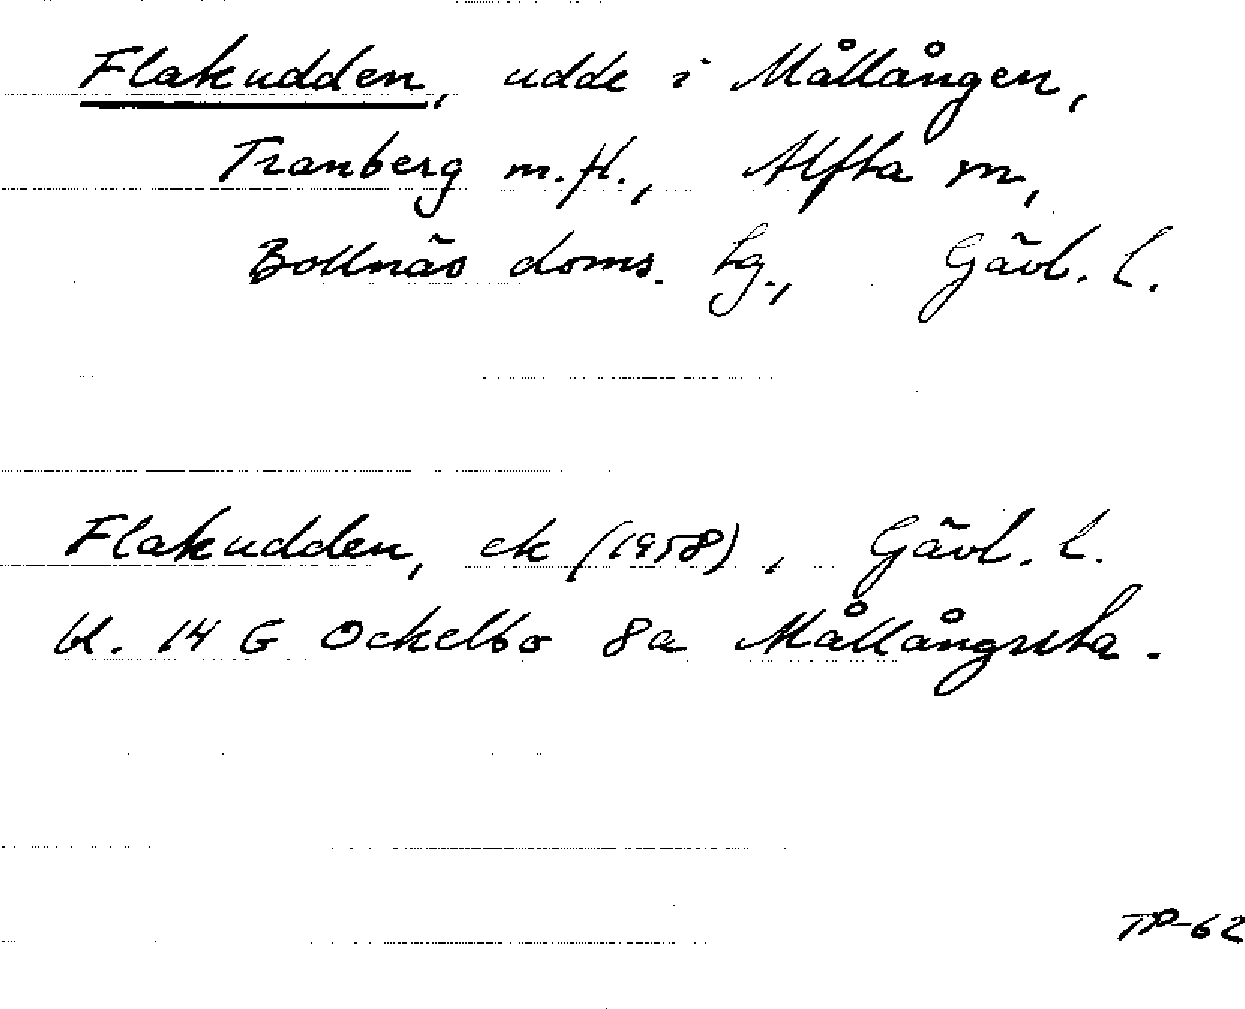 Flakudden, udde i Mållången,
Tranberg m.fl., Alfta sn,
Bollnäs doms. tg., Gävl. l.
Flakudden, ek (1958), Gävl. l.
bl. 14 G Ockelbo 8a Mållångssta.
TP-62